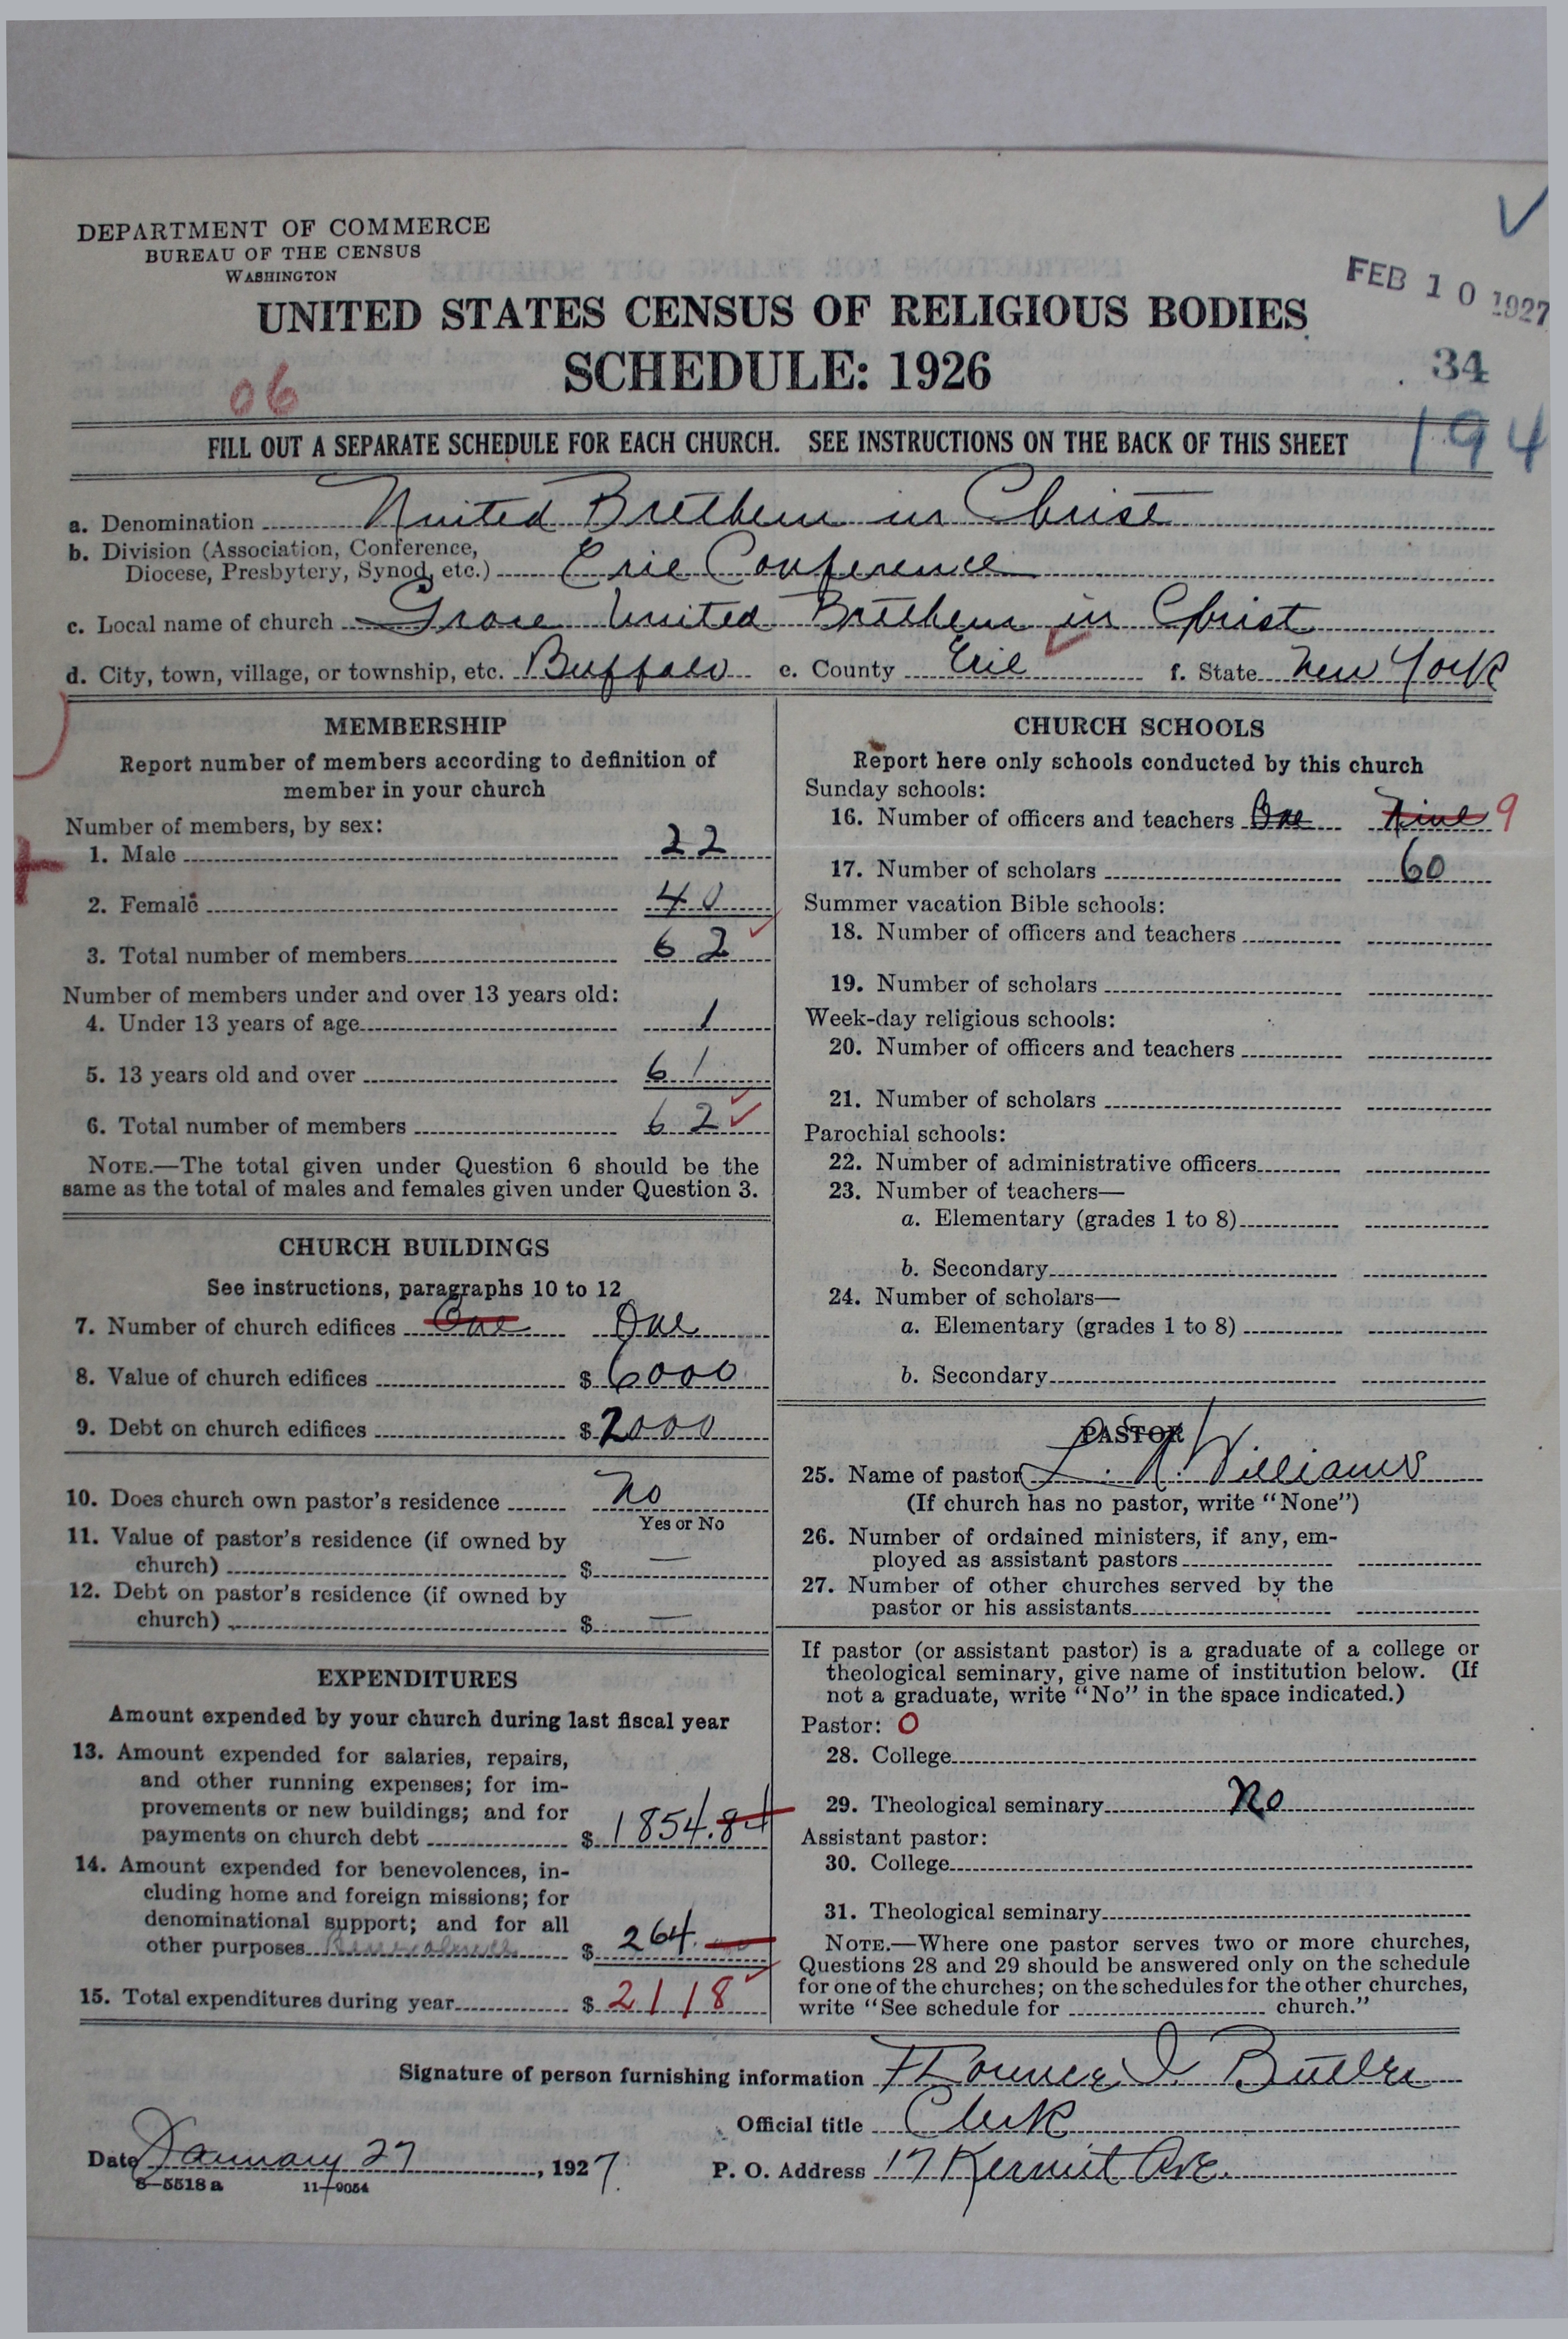 DEPARTMENT OF COMMERCE
BUREAU OF THE CENSUS
WASHINGTON
FEB 10 1927
UNITED STATES CENSUS OF RELIGIOUS BODIES
SCHEDULE: 1926
34
06
194
FILL OUT A SEPARATE SCHEDULE FOR EACH CHURCH. SEE INSTRUCTIONS ON THE BACK OF THIS SHEET
a. Denomination United Brethern in Christ
b. Division (Association, Conference, Diocese, Presbytery, Synod, etc.) Erie Conference
c. Local name of church Grace United Brethern in Christ
d. City, town, village, or township, etc. Buffalo e. County Erie f. State New York
MEMBERSHIP
Report number of members according to definition of
member in your church
Number of members, by sex:
1. Male 22
2. Female 40
3. Total number of members 62
Number of members under and over 13 years old:
4. Under 13 years of age 1
5. 13 years old and over 61
6. Total number of members 62
NOTE.—The total given under Question 6 should be the
same as the total of males and females given under Question 3.
CHURCH BUILDINGS
See instructions, paragraphs 10 to 12
7. Number of church edifices One One
8. Value of church edifices $6000
9. Debt on church edifices $2000
10. Does church own pastor's residence No
Yes or No
11. Value of pastor's residence (if owned by
church) $ —
12. Debt on pastor's residence (if owned by
church) $ —
EXPENDITURES
Amount expended by your church during last fiscal year
13. Amount expended for salaries, repairs,
and other running expenses; for im-
provements or new buildings; and for
payments on church debt $ 1854.84
14. Amount expended for benevolences, in-
cluding home and foreign missions; for
denominational support; and for all
other purposes $ 264.
15. Total expenditures during year $ 2118
CHURCH SCHOOLS
Report here only schools conducted by this church
Sunday schools:
16. Number of officers and teachers One Nine 9
17. Number of scholars 60
Summer vacation Bible schools:
18. Number of officers and teachers
19. Number of scholars
Week-day religious schools:
20. Number of officers and teachers
21. Number of scholars
Parochial schools:
22. Number of administrative officers
23. Number of teachers—
a. Elementary (grades 1 to 8)
b. Secondary
24. Number of scholars—
a. Elementary (grades 1 to 8)
b. Secondary
PASTOR
25. Name of pastor L. A. Williams
(If church has no pastor, write "None")
26. Number of ordained ministers, if any, em-
ployed as assistant pastors
27. Number of other churches served by the
pastor or his assistants
If pastor (or assistant pastor) is a graduate of a college or
theological seminary, give name of institution below. (If
not a graduate, write "No" in the space indicated.)
Pastor: 0
28. College
29. Theological seminary No
Assistant pastor:
30. College
31. Theological seminary
NOTE.—Where one pastor serves two or more churches,
Questions 28 and 29 should be answered only on the schedule
for one of the churches; on the schedules for the other churches,
write "See schedule for church."
Signature of person furnishing information Florence I. Butler
Official title Clerk
Date January 27, 1927. P. O. Address 17 Kermit Ave.
8—5518 a 11—9054